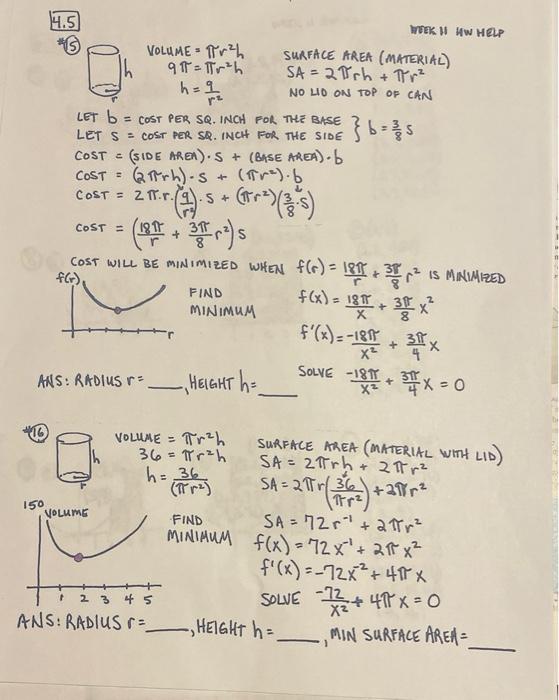 4.5
WEEK 11 HW HELP
#15
VOLUME = πr²h
9π = πr²h
h = 9/r²
h
r
SURFACE AREA (MATERIAL)
SA = 2πrh + πr²
NO LID ON TOP OF CAN
LET b = COST PER SQ. INCH FOR THE BASE
LET S = COST PER SQ. INCH FOR THE SIDE } b = 3/8 S
COST = (SIDE AREA)·S + (BASE AREA)·b
COST = (2πrh)·S + (πr²)·b
COST = 2π·r·(9/r²)·S + (πr²)(3/8·S)
COST = (18π/r + 3π/8 r²)S
COST WILL BE MINIMIZED WHEN f(r) = 18π/r + 3π/8 r² IS MINIMIZED
f(r)
r
FIND
MINIMUM
f(x) = 18π/x + 3π/8 x²
f'(x) = -18π/x² + 3π/4 x
SOLVE -18π/x² + 3π/4 x = 0
ANS: RADIUS r = ___, HEIGHT h = ___
#16
h
r
VOLUME = πr²h
36 = πr²h
h = 36/(πr²)
SURFACE AREA (MATERIAL WITH LID)
SA = 2πrh + 2πr²
SA = 2πr(36/πr²) + 2πr²
SA = 72r⁻¹ + 2πr²
f(x) = 72x⁻¹ + 2πx²
f'(x) = -72x⁻² + 4πx
SOLVE -72/x² + 4πx = 0
150
VOLUME
FIND
MINIMUM
1 2 3 4 5
ANS: RADIUS r = ___, HEIGHT h = ___, MIN SURFACE AREA = ___